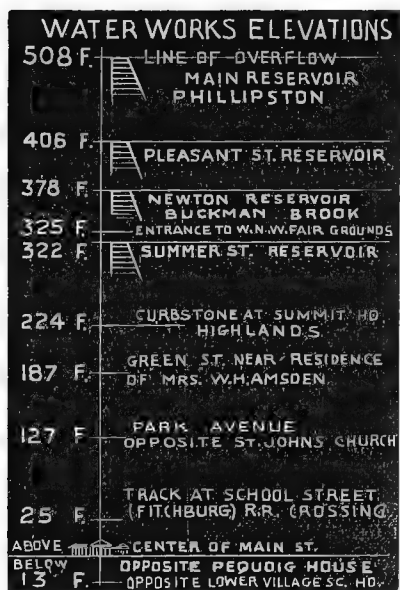 WATER WORKS ELEVATIONS
508 F. LINE OF OVERFLOW
MAIN RESERVOIR
PHILLIPSTON
406 F. PLEASANT ST. RESERVOIR
378 F.
NEWTON RESERVOIR
BUCKMAN BROOK
325 F. ENTRANCE TO W.N.W. FAIR GROUNDS
322 F. SUMMER ST. RESERVOIR
224 F. CURBSTONE AT SUMMIT HO
HIGHLANDS
187 F. GREEN ST. NEAR RESIDENCE
OF MRS. W.H. AMSDEN
127 F. PARK AVENUE
OPPOSITE ST. JOHNS CHURCH
TRACK AT SCHOOL STREET
25 F. (FITCHBURG) R.R. CROSSING
ABOVE CENTER OF MAIN ST.
BELOW OPPOSITE PEQUOIG HOUSE
13 F. OPPOSITE LOWER VILLAGE SC. HO.